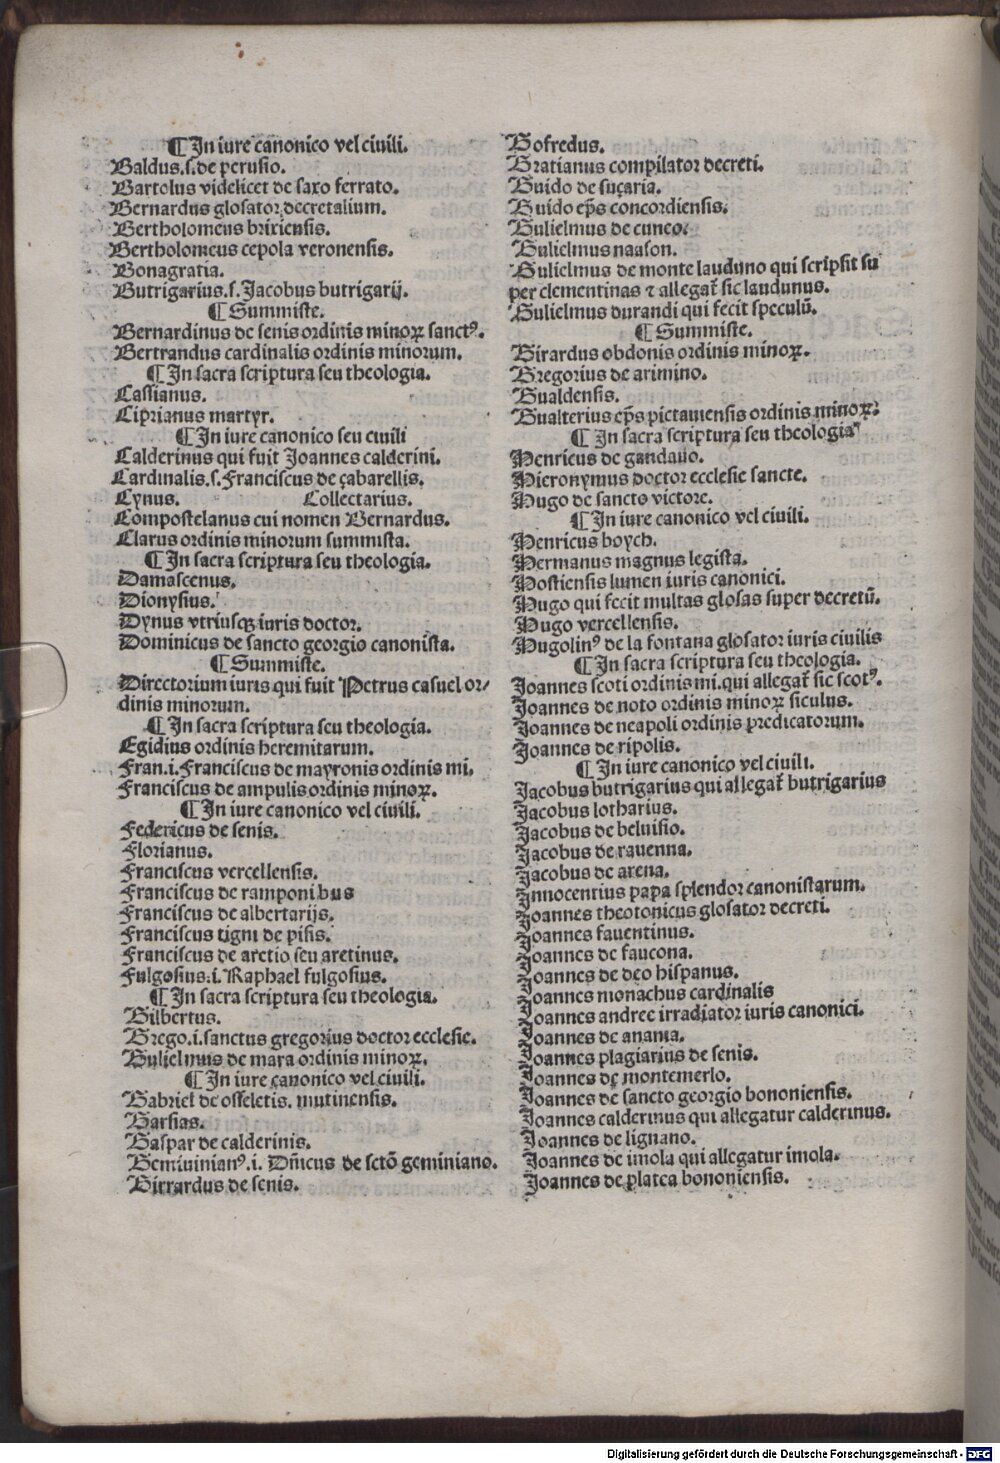 ¶ In iure canonico vel ciuili.
Baldus.s.de perusio.
Bartolus videlicet de saxo ferrato.
Bernardus glosator decretalium.
Bertholomeus brixiensis.
Bertholomeus cepola veronensis.
Bonagratia.
Butrigarius.s.Jacobus butrigarij.
¶ Summiste.
Bernardinus de senis ordinis minoꝝ sanctꝰ.
Bertrandus cardinalis ordinis minorum.
¶ In sacra scriptura seu theologia.
Cassianus.
Ciprianus martyr.
¶ In iure canonico seu ciuili
Calderinus qui fuit Joannes calderini.
Cardinalis.s.Franciscus de çabarellis.
Cynus. Collectarius.
Compostelanus cui nomen Bernardus.
Clarus ordinis minorum summista.
¶ In sacra scriptura seu theologia.
Damascenus.
Dionysius.
Dynus vtriusqꝫ iuris doctor.
Dominicus de sancto georgio canonista.
¶ Summiste.
Directorium iuris qui fuit Petrus casuel or/
dinis minorum.
¶ In sacra scriptura seu theologia.
Egidius ordinis heremitarum.
Fran.i.Franciscus de mayronis ordinis mi.
Franciscus de ampulis ordinis minoꝝ.
¶ In iure canonico vel ciuili.
Federicus de senis.
Florianus.
Franciscus vercellensis.
Franciscus de ramponibus
Franciscus de albertarijs.
Franciscus tigni de pisis.
Franciscus de aretio seu aretinus.
Fulgosius.i.Raphael fulgosius.
¶ In sacra scriptura seu theologia.
Gilbertus.
Grego.i.sanctus gregorius doctor ecclesie.
Gulielmus de mara ordinis minoꝝ.
¶ In iure canonico vel ciuili.
Gabriel de osseletis. mutinensis.
Garsias.
Gaspar de calderinis.
Geminianꝰ.i. Dñicus de sctō geminiano.
Girrardus de senis.
Gofredus.
Gratianus compilator decreti.
Guido de suçaria.
Guido ep̄s concordiensis.
Gulielmus de cuneo.
Gulielmus naason.
Gulielmus de monte lauduno qui scripsit su
per clementinas ⁊ allegat̄ sic laudunus.
Gulielmus durandi qui fecit speculū.
¶ Summiste.
Girardus obdonis ordinis minoꝝ.
Gregorius de arimino.
Gualdensis.
Gualterius ep̄s pictauiensis ordinis minoꝝ.
¶ In sacra scriptura seu theologia
Henricus de gandauo.
Hieronymus doctor ecclesie sancte.
Hugo de sancto victore.
¶ In iure canonico vel ciuili.
Henricus boych.
Hermanus magnus legista.
Hostiensis lumen iuris canonici.
Hugo qui fecit multas glosas super decretū.
Hugo vercellensis.
Hugolinꝰ de la fontana glosator iuris ciuilis
¶ In sacra scriptura seu theologia.
Joannes scoti ordinis mi.qui allegat̄ sic scotꝰ.
Joannes de noto ordinis minoꝝ siculus.
Joannes de neapoli ordinis predicatorum.
Joannes de ripolis.
¶ In iure canonico vel ciuili.
Jacobus butrigarius qui allegat̄ butrigarius
Jacobus lotharius.
Jacobus de beluisio.
Jacobus de rauenna.
Jacobus de arena.
Innocentius papa splendor canonistarum.
Joannes theotonicus glosator decreti.
Joannes fauentinus.
Joannes de faucona.
Joannes de deo hispanus.
Joannes monachus cardinalis
Joannes andree irradiator iuris canonici.
Joannes de anania.
Joannes plagiarius de senis.
Joannes de montemerlo.
Joannes de sancto georgio bononiensis.
Joannes calderinus qui allegatur calderinus.
Joannes de lignano.
Joannes de imola qui allegatur imola.
Joannes de platea bononiensis.
Digitalisierung gefördert durch die Deutsche Forschungsgemeinschaft - DFG